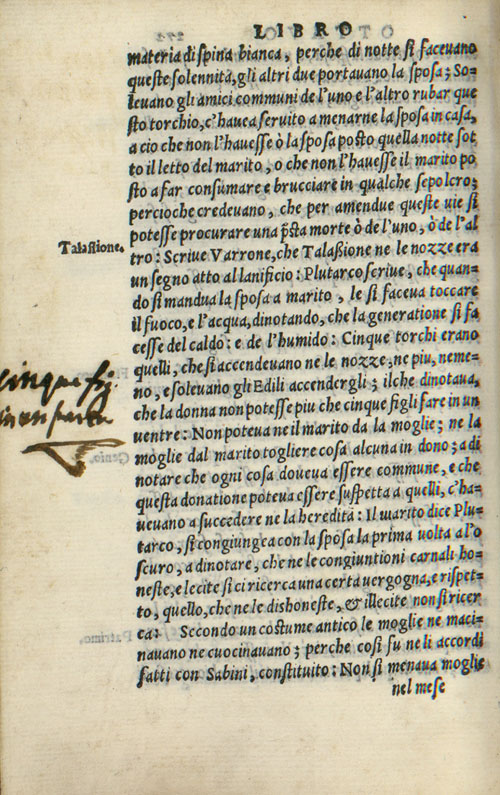 LIBRO
materia di spina bianca, perche di notte si faceuano
queste solennità, gli altri due portauano la sposa; So-
leuano gli amici communi de l'uno e l'altro rubar que
sto torchio, c'hauea seruito a menarne la sposa in casa,
a cio che non l'hauesse ò la sposa posto quella notte sot
to il letto del marito, o che non l'hauesse il marito po
sto a far consumare e brucciare in qualche sepolcro;
percioche credeuano, che per amendue queste uie si
potesse procurare una p̃sta morte ò de l'uno, ò de l'al
Talassione.
tro: Scriue Varrone, che Talassione ne le nozze era
un segno atto al lanificio: Plutarco scriue, che quan-
do si mandua la sposa a marito, le si faceua toccare
il fuoco, e l'acqua, dinotando, che la generatione si fa
cesse del caldo: e de l'humido: Cinque torchi erano
quelli, che si accendeuano ne le nozze, ne piu, ne me-
no, e soleuano gli Edili accendergli; ilche dinotaua,
cinque figl.
in un parto
che la donna non potesse piu che cinque figli fare in un
uentre: Non poteua ne il marito da la moglie; ne la
moglie dal marito togliere cosa alcuna in dono; a di
notare che ogni cosa doueua essere commune, e che
questa donatione poteua essere suspetta a quelli, c'ha-
ueuano a succedere ne la heredità: Il marito dice Plu-
tarco, si congiungea con la sposa la prima uolta al'o
scuro, a dinotare, che ne le congiuntioni carnali ho-
neste, e lecite si ci ricerca una certa uergogna, e rispet-
to, quello, che ne le dishoneste, & illecite non si ricer
ca: Secondo un costume antico le moglie ne maci-
nauano ne cucinauano; perche cosi fu ne li accordi
fatti con Sabini, constituito: Non si menaua moglie
nel mese